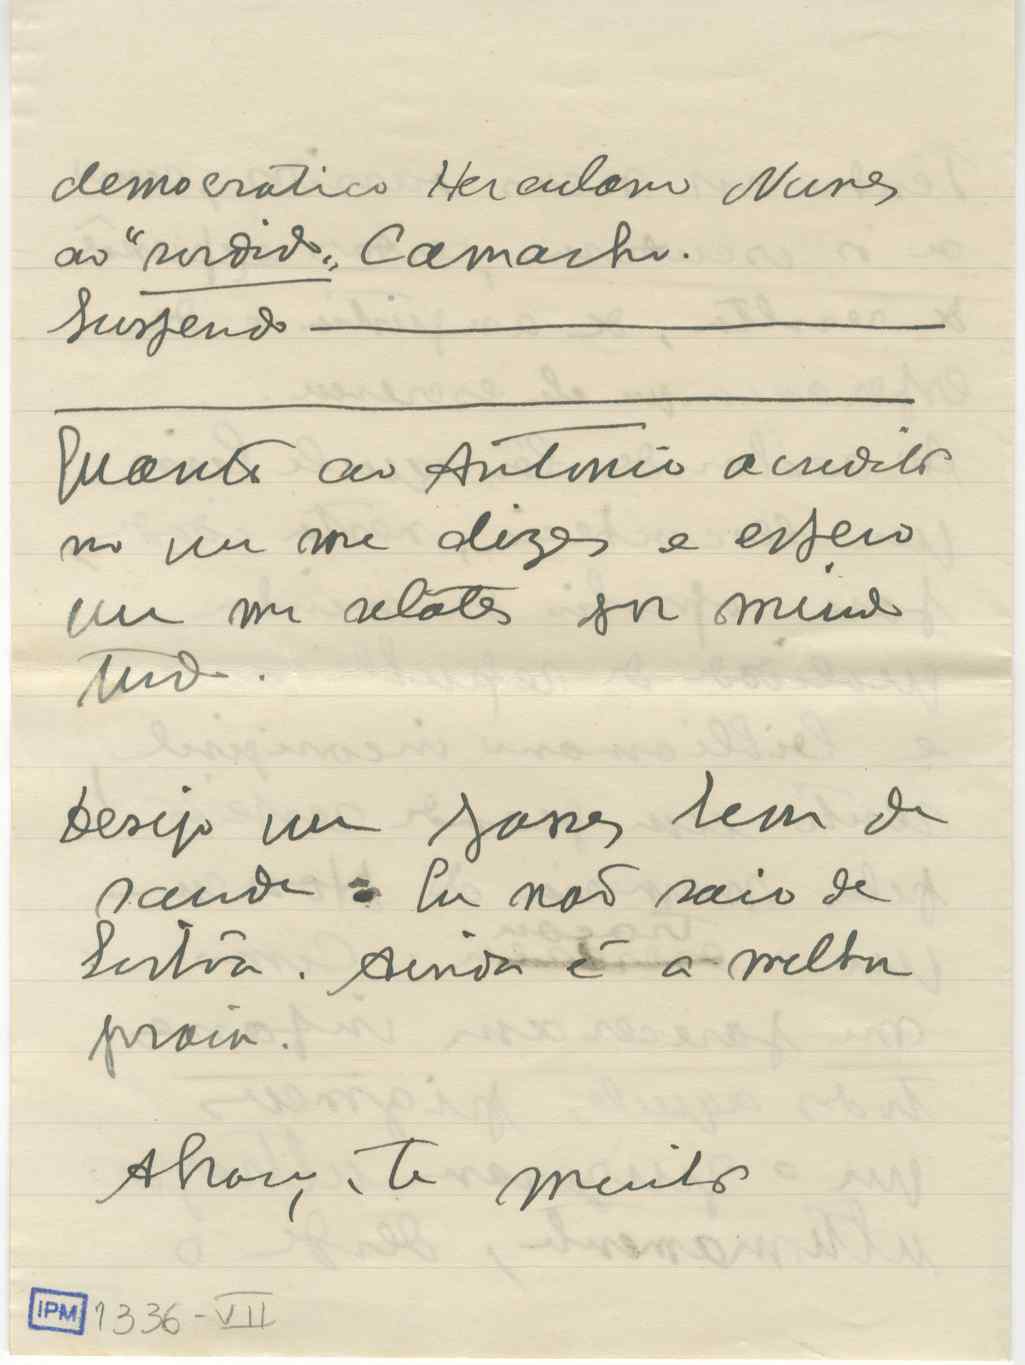 democratico Herculano Nunes
ao "sordido" Camacho.
Suspendo
Quanto ao Antonio acredito
no que me dizes e espero
que me relates por miudo
tudo.
Desejo que passes bem de
saude. Eu não saio de
Sertã. Ainda é a melhor
praia.
Abraça-te muito
IPM 1336-VII